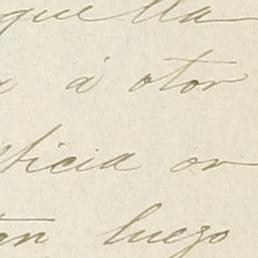 quella
a á otor
sticia or
tan luego